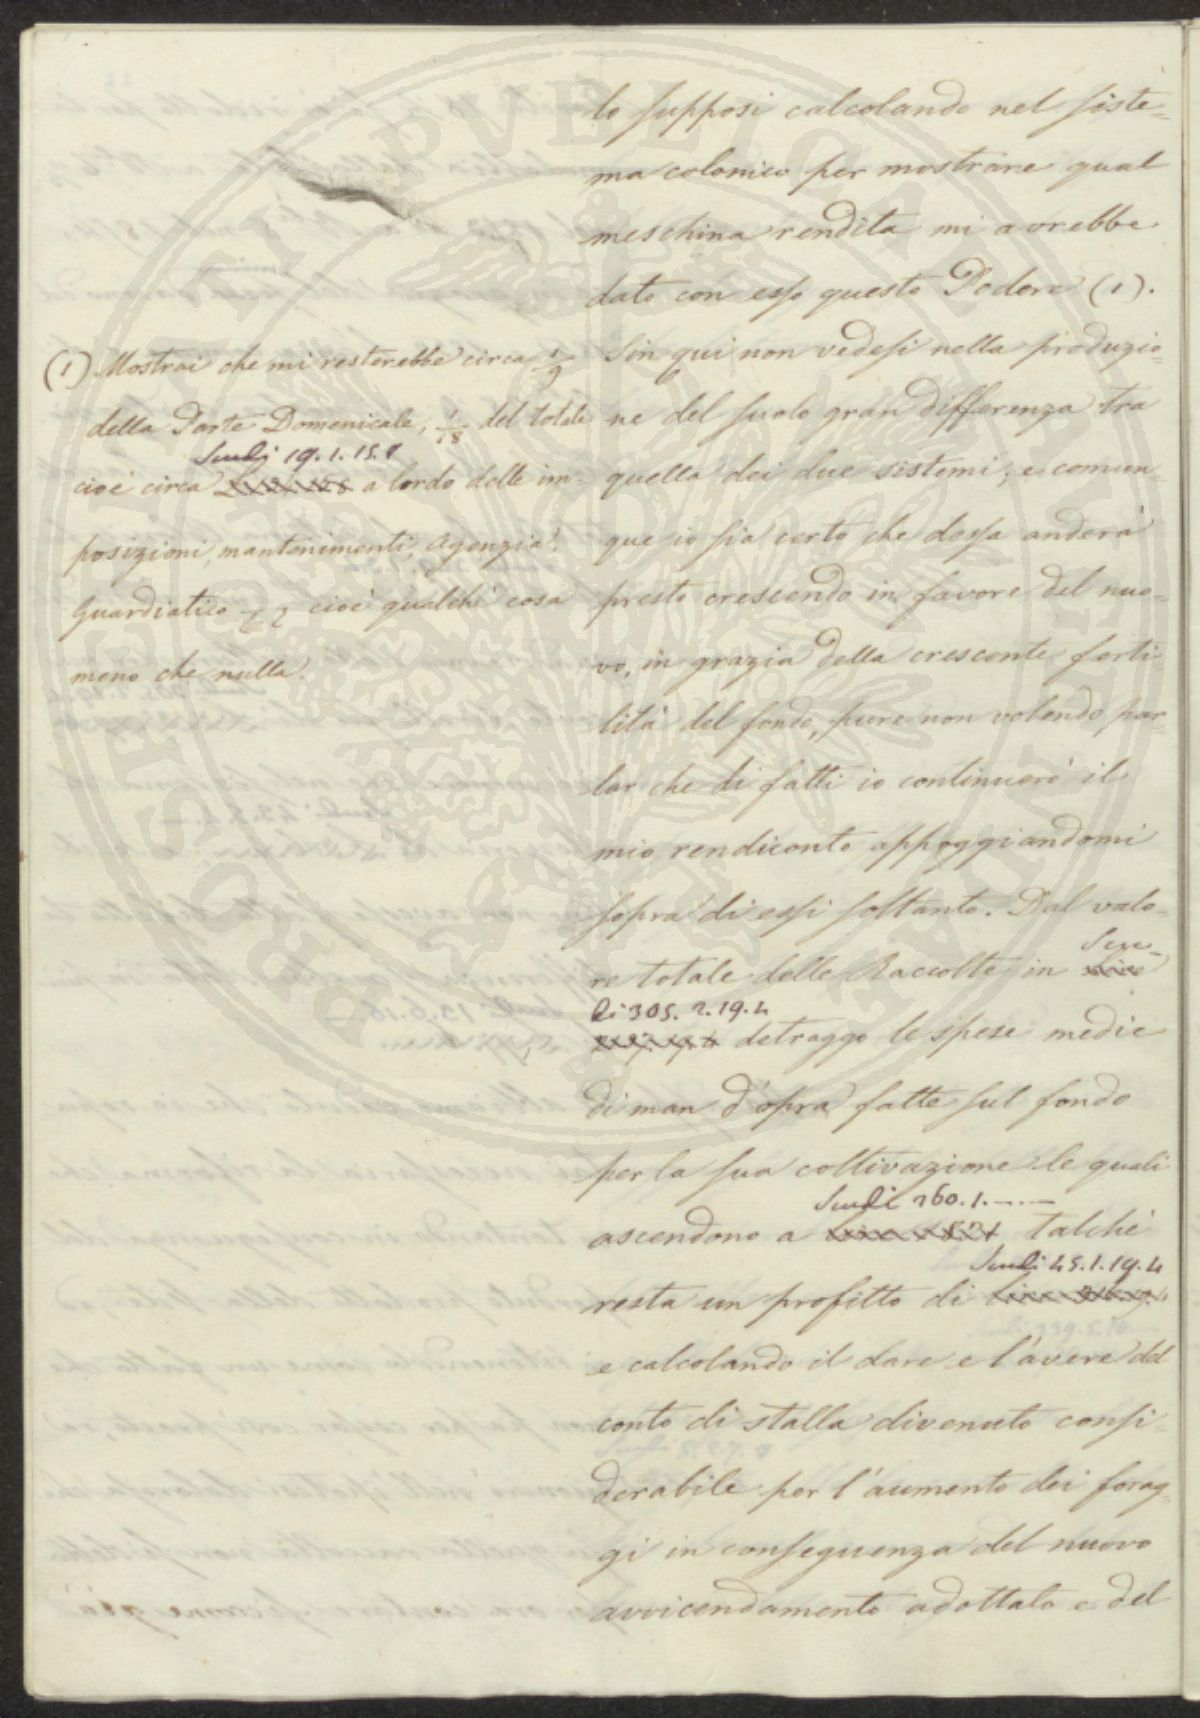 lo supposi calcolando nel siste=
ma colonico per mostrare qual
meschina rendita mi avrebbe
dato con esso questo Podere (1).
Sin qui non vedesi nella produzio=
ne del suolo gran differenza tra
quella dei due sistemi, e comun=
que io sia certo che dessa anderà
presto crescendo in favore del nuo=
vo, in grazia della crescente ferti=
lità del fondo, pure non volendo par=
lar che di fatti io continuerò il
mio rendiconto appoggiandomi
sopra di essi soltanto. Dal valo=
re totale delle Raccolte in Scu=
di 305. 2. 19. 4
detraggo le spese medie
di man d'opra fatte sul fondo
per la sua coltivazione le quali
ascendono a Scudi 260. 1. — — talchè
resta un profitto di Scudi 45. 1. 19. 4
e calcolando il dare e l'avere del
conto di stalla divenuto consi=
derabile per l'aumento dei forag=
gi in conseguenza del nuovo
avvicendamento adottato e del
(1) Mostrai che mi resterebbe circa 1/9
della Parte Domenicale, 1/18 del totale
cioè circa Scudi 19. 1. 15. 8 a lordo delle im=
posizioni, mantenimenti, Agenzia,
Guardiatico cioè qualche cosa
meno che nulla.
PROSPERITATI PVBLICAE